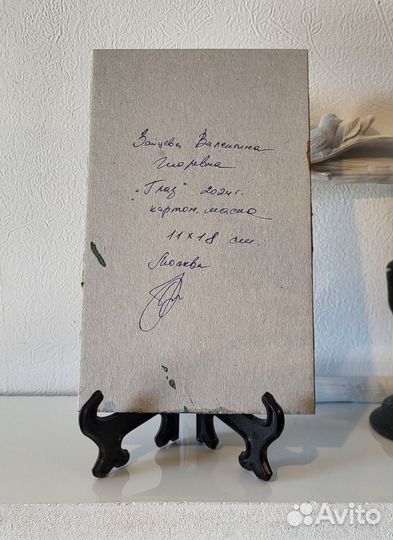 Зайцева Валентина
Игоревна
"Глаз" 2024г.
картон, масло
11х18 см.
Москва
Avito